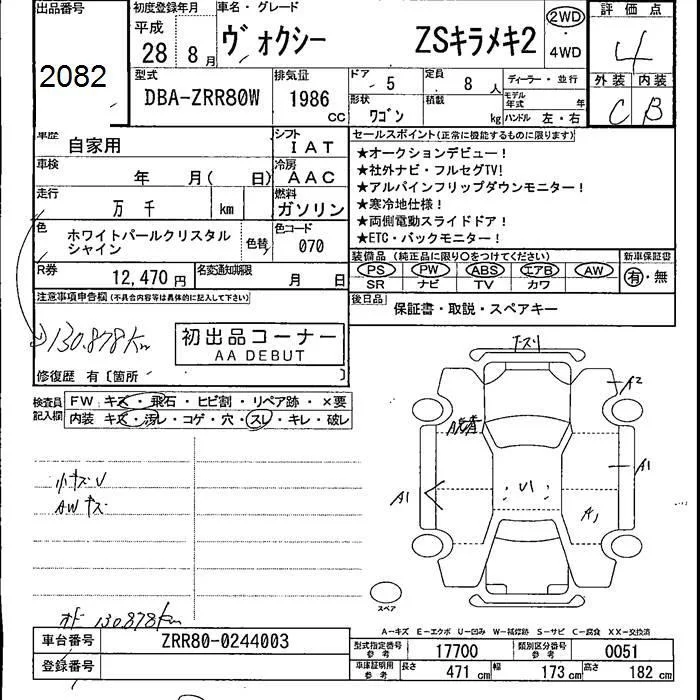 出品番号 初度登録年月 車名・グレード 評価点
2082 平成 28 8月 ヴォクシー ZSキラメキ2 2WD・4WD 4
型式 排気量 ドア 定員 ディーラー・並行 外装 内装
DBA-ZRR80W 1986 CC 5 8 人 C B
形状 ワゴン 積載 kg モデル年式 年 ハンドル 左・右
車歴 自家用 シフト IAT セールスポイント(正常に機能するものに限ります)
車検 年 月( 日) 冷房 AAC ★オークションデビュー!
★社外ナビ・フルセグTV!
走行 万 千 km 燃料 ガソリン ★アルパインフリップダウンモニター!
★寒冷地仕様!
色 ホワイトパールクリスタルシャイン 色替 色コード 070 ★両側電動スライドドア!
★ETC・バックモニター!
R券 12,470 円 名変通知期限 月 日 装備品(純正品に限り○をつけてください) 新車保証書
PS PW ABS エアB AW 有・無
SR ナビ TV カワ
注意事項申告欄(不具合内容等は具体的に記入して下さい) 後日品 保証書・取説・スペアキー
130.878km 初出品コーナー
AA DEBUT
修復歴 有〔箇所
検査員記入欄 FW キズ・飛石・ヒビ割・リペア跡・×要
内装 キズ・汚レ・コゲ・穴・スレ・キレ・破レ
A2
A1
U1
A1
A1
小キズU
AWキズ
スペア
130878km
A-キズ E-エクボ U-凹み W-補修跡 S-サビ C-腐食 XX-交換済
車台番号 ZRR80-0244003 型式指定番号 参考 17700 類別区分番号 参考 0051
登録番号 車庫証明用 参考 長さ 471 cm 幅 173 cm 高さ 182 cm